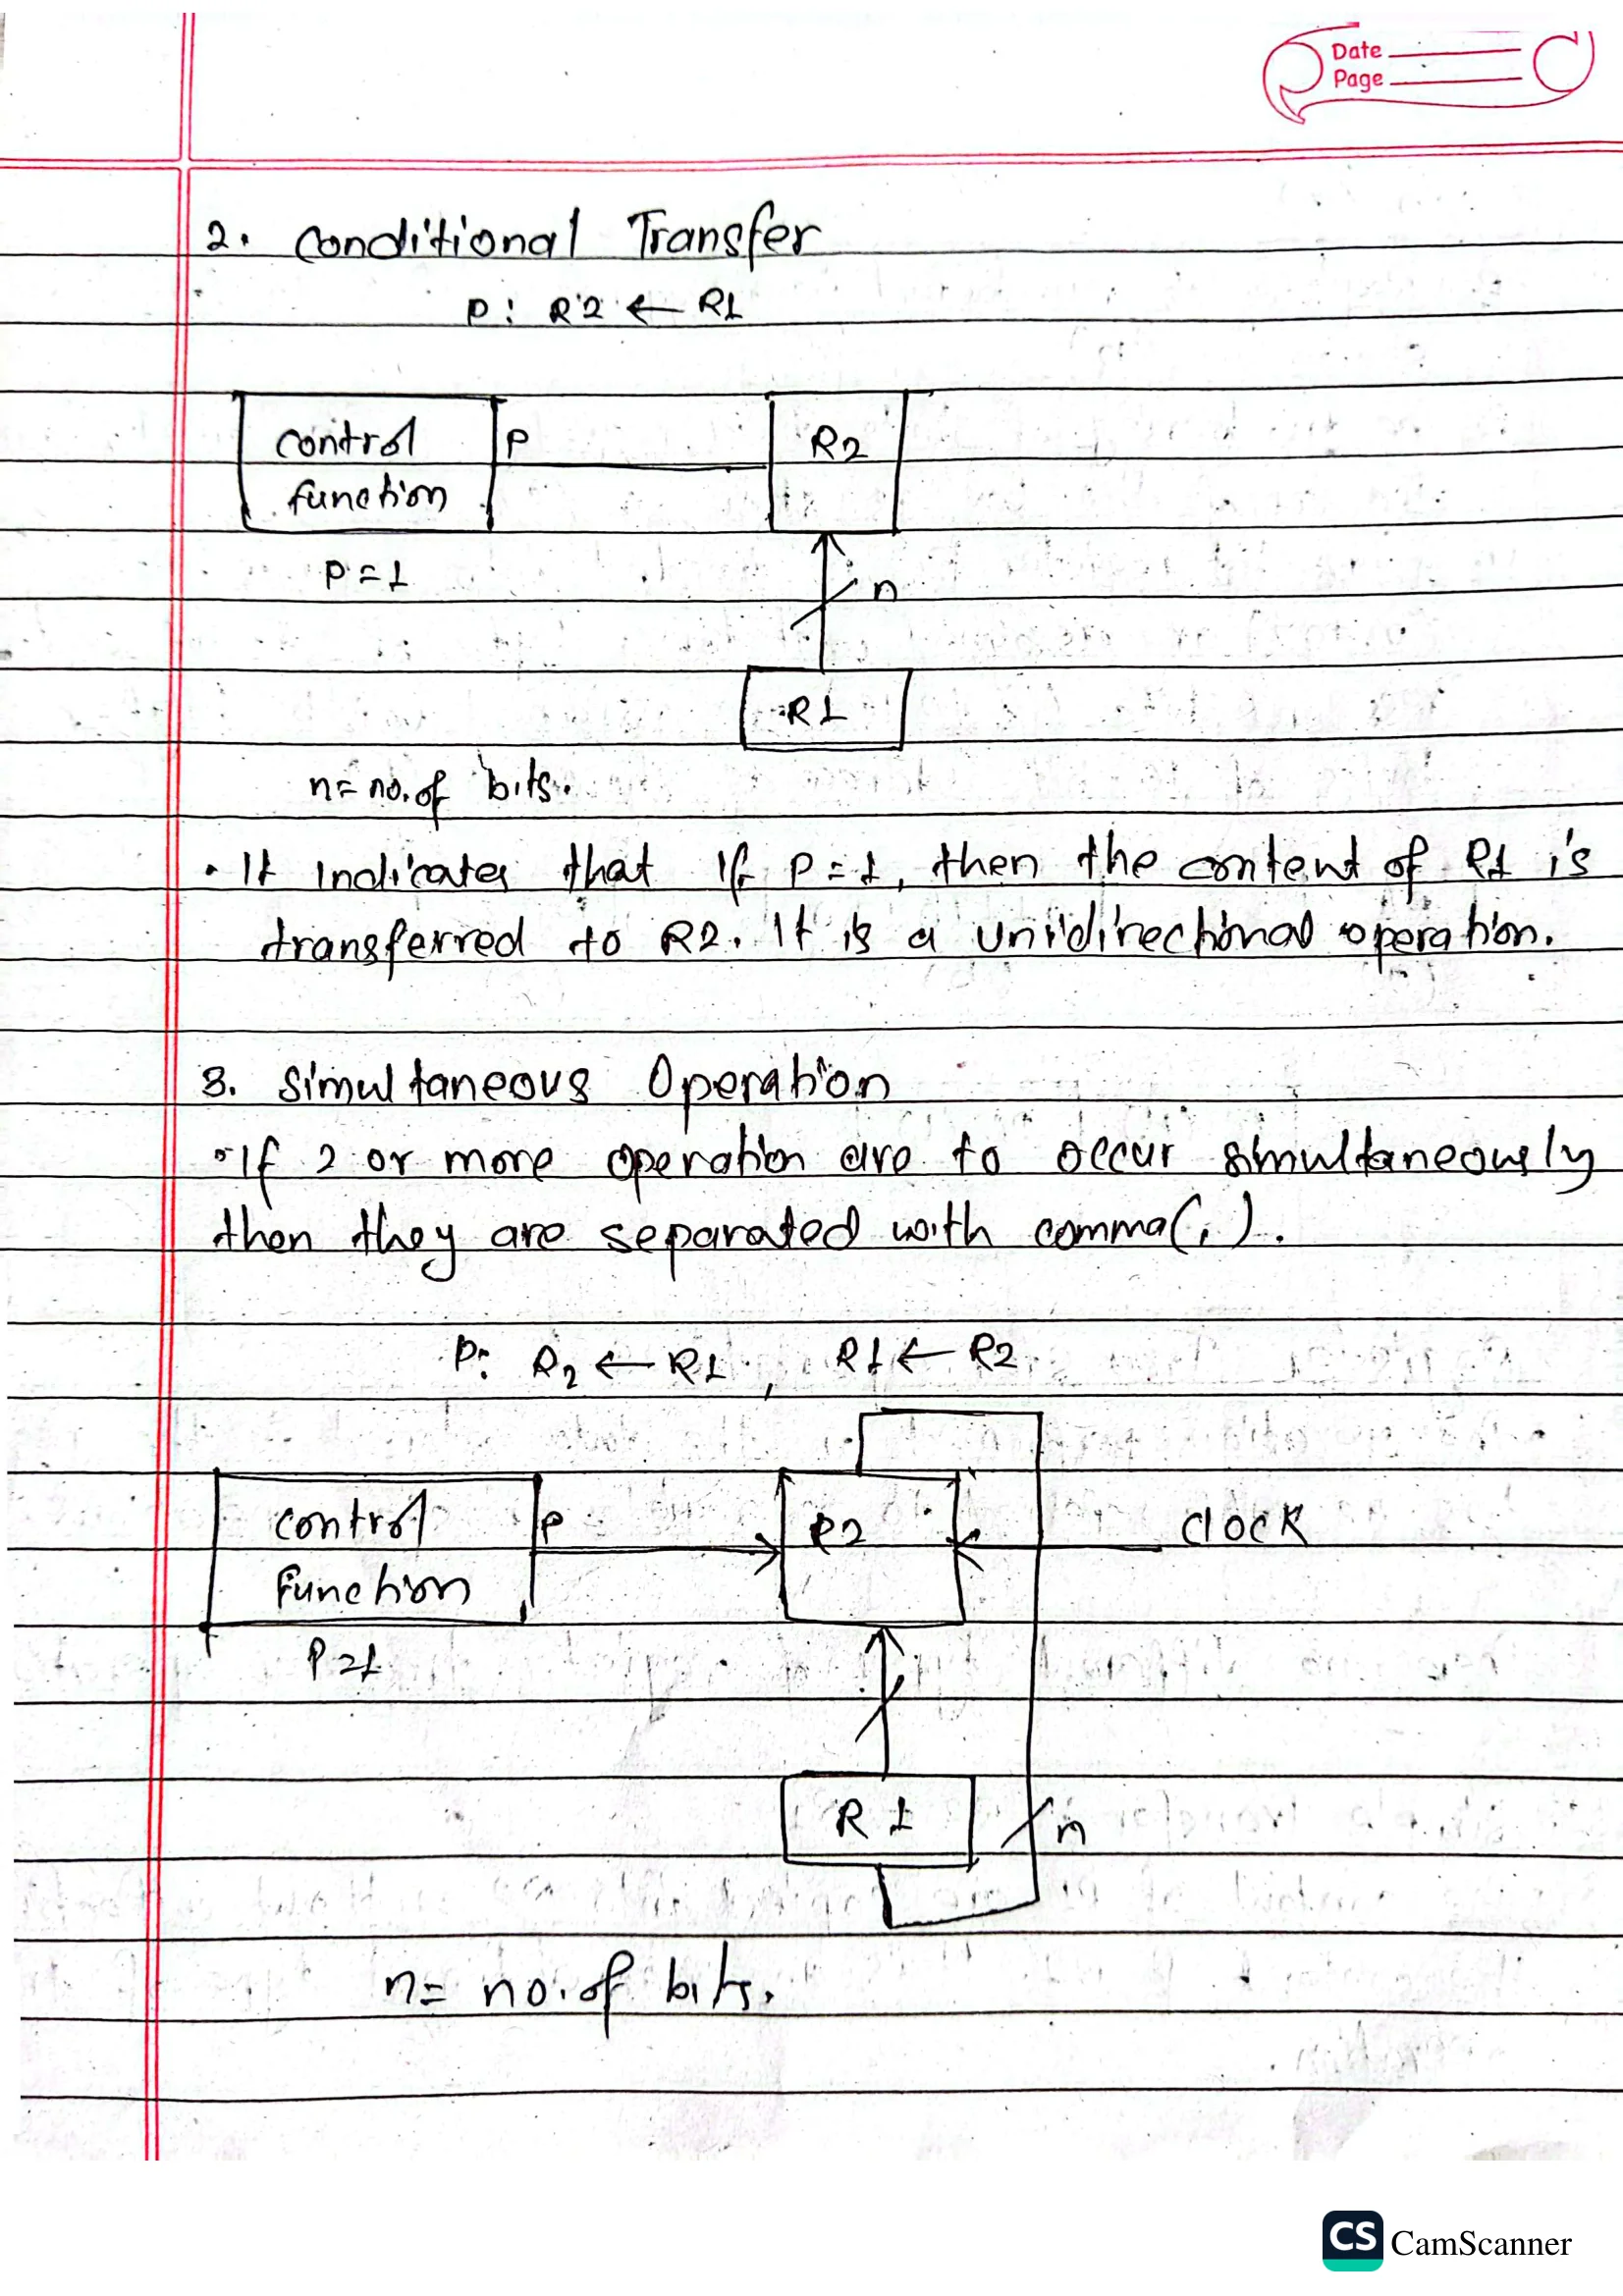 Date
Page
2. Conditional Transfer
P: R2 ← R1
Control
function
P
R2
P=1
n
R1
n= no. of bits.
• It indicates that if P=1, then the content of R1 is
transferred to R2. It is a unidirectional operation.
3. Simultaneous Operation
• If 2 or more operation are to occur simultaneously
then they are separated with comma(,).
P: R2 ← R1 , R1 ← R2
Control
Function
P
R2
Clock
P=1
R1
n
n= no. of bits.
CS CamScanner